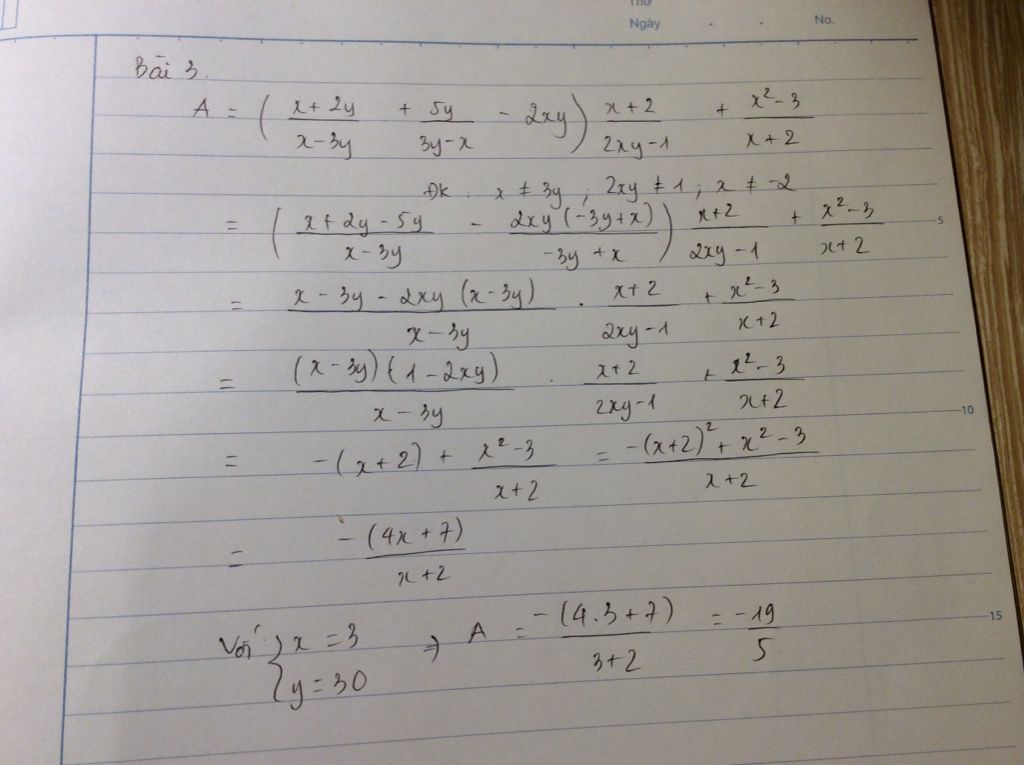 Thứ
Ngày . . No.
Bài 3.
A = ( \frac{x+2y}{x-3y} + \frac{5y}{3y-x} - 2xy ) \frac{x+2}{2xy-1} + \frac{x^2-3}{x+2}
Đk. x ≠ 3y ; 2xy ≠ 1 ; x ≠ -2
= ( \frac{x+2y-5y}{x-3y} - \frac{2xy(-3y+x)}{-3y+x} ) \frac{x+2}{2xy-1} + \frac{x^2-3}{x+2}
5
= \frac{x-3y-2xy(x-3y)}{x-3y} . \frac{x+2}{2xy-1} + \frac{x^2-3}{x+2}
= \frac{(x-3y)(1-2xy)}{x-3y} . \frac{x+2}{2xy-1} + \frac{x^2-3}{x+2}
10
= -(x+2) + \frac{x^2-3}{x+2} = \frac{-(x+2)^2+x^2-3}{x+2}
= \frac{-(4x+7)}{x+2}
15
Với { x = 3 ⇒ A = \frac{-(4.3+7)}{3+2} = \frac{-19}{5}
y = 30